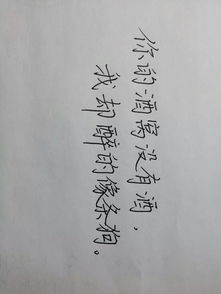 你的酒窝没有酒，
我却醉的像条狗。